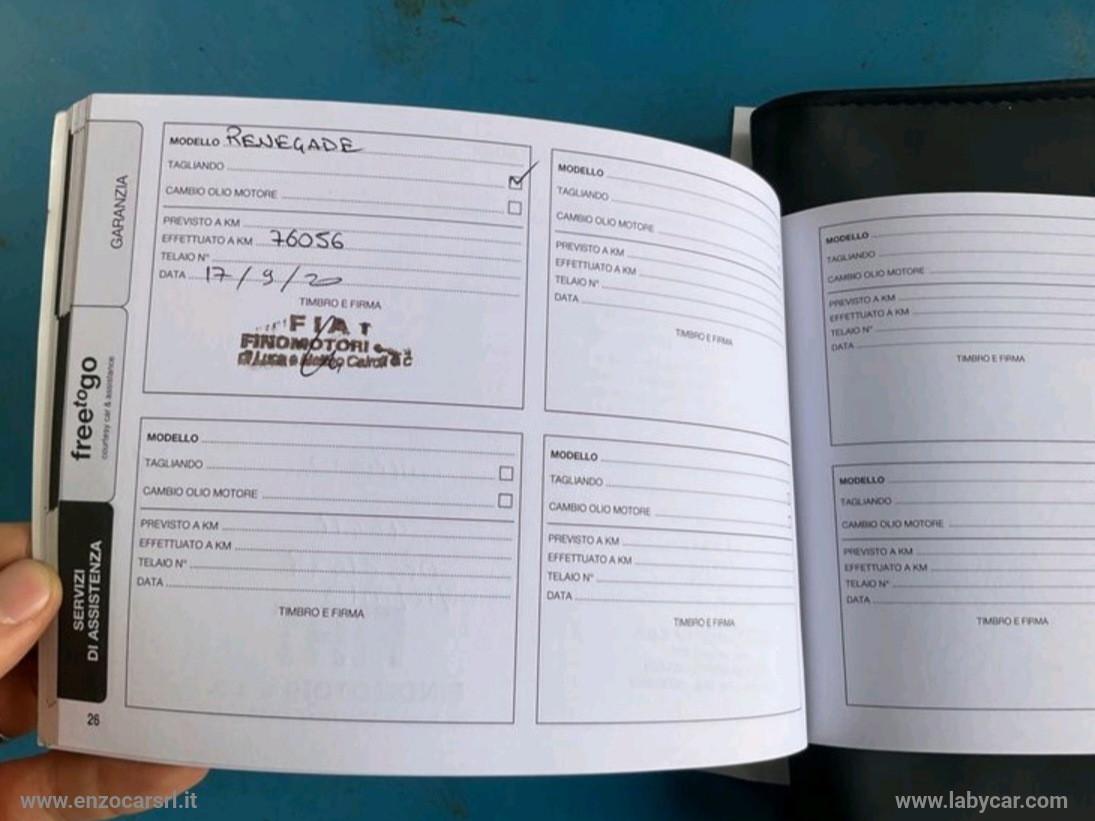 GARANZIA
freetogo
courtesy car & assistance
SERVIZI
DI ASSISTENZA
26
MODELLO RENEGADE
TAGLIANDO
CAMBIO OLIO MOTORE
PREVISTO A KM
EFFETTUATO A KM 76056
TELAIO N°
DATA 17/9/20
TIMBRO E FIRMA
FIAT
FINOMOTORI
MODELLO
TAGLIANDO
CAMBIO OLIO MOTORE
PREVISTO A KM
EFFETTUATO A KM
TELAIO N°
DATA
TIMBRO E FIRMA
MODELLO
TAGLIANDO
CAMBIO OLIO MOTORE
PREVISTO A KM
EFFETTUATO A KM
TELAIO N°
DATA
TIMBRO E FIRMA
MODELLO
TAGLIANDO
CAMBIO OLIO MOTORE
PREVISTO A KM
EFFETTUATO A KM
TELAIO N°
DATA
TIMBRO E FIRMA
MODELLO
TAGLIANDO
CAMBIO OLIO MOTORE
PREVISTO A KM
EFFETTUATO A KM
TELAIO N°
DATA
TIMBRO E FIRMA
MODELLO
TAGLIANDO
CAMBIO OLIO MOTORE
PREVISTO A KM
EFFETTUATO A KM
TELAIO N°
DATA
TIMBRO E FIRMA
www.enzocarsrl.it
www.labycar.com